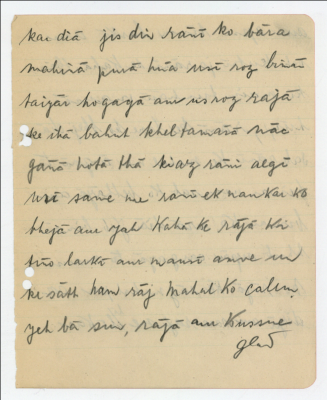 kar diā jis din rānī ko bāra
mahinā purā huā usī roz binā
taiyār hogayā aur us roz rājā
ke ihā bahut khel tamāsā nāc
gānā hotā thā kiāj rānī aegī
usī same me rānī ek naukar ko
bhejā aur yah kahā ke rājā ki
tino larkā aur mausī auve un
ke sāth ham rāj mahal ko calun,
yeh bā sun, rājā aur kussne